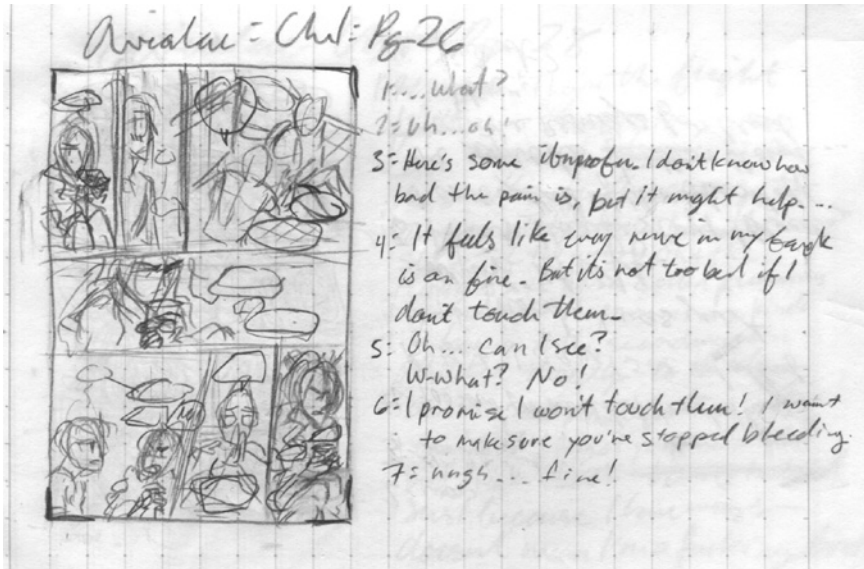 Avialae = Ch1 = Pg 26
1 = ...what?
2 = Uh...oh!
3 = Here's some ibuprofen. I don't know how
bad the pain is, but it might help...
4 = It feels like every nerve in my back
is on fire. But it's not too bad if I
don't touch them.
5 = Oh... can I see?
W-what? No!
6 = I promise I won't touch them! I want
to make sure you've stopped bleeding.
7 = ... fine!